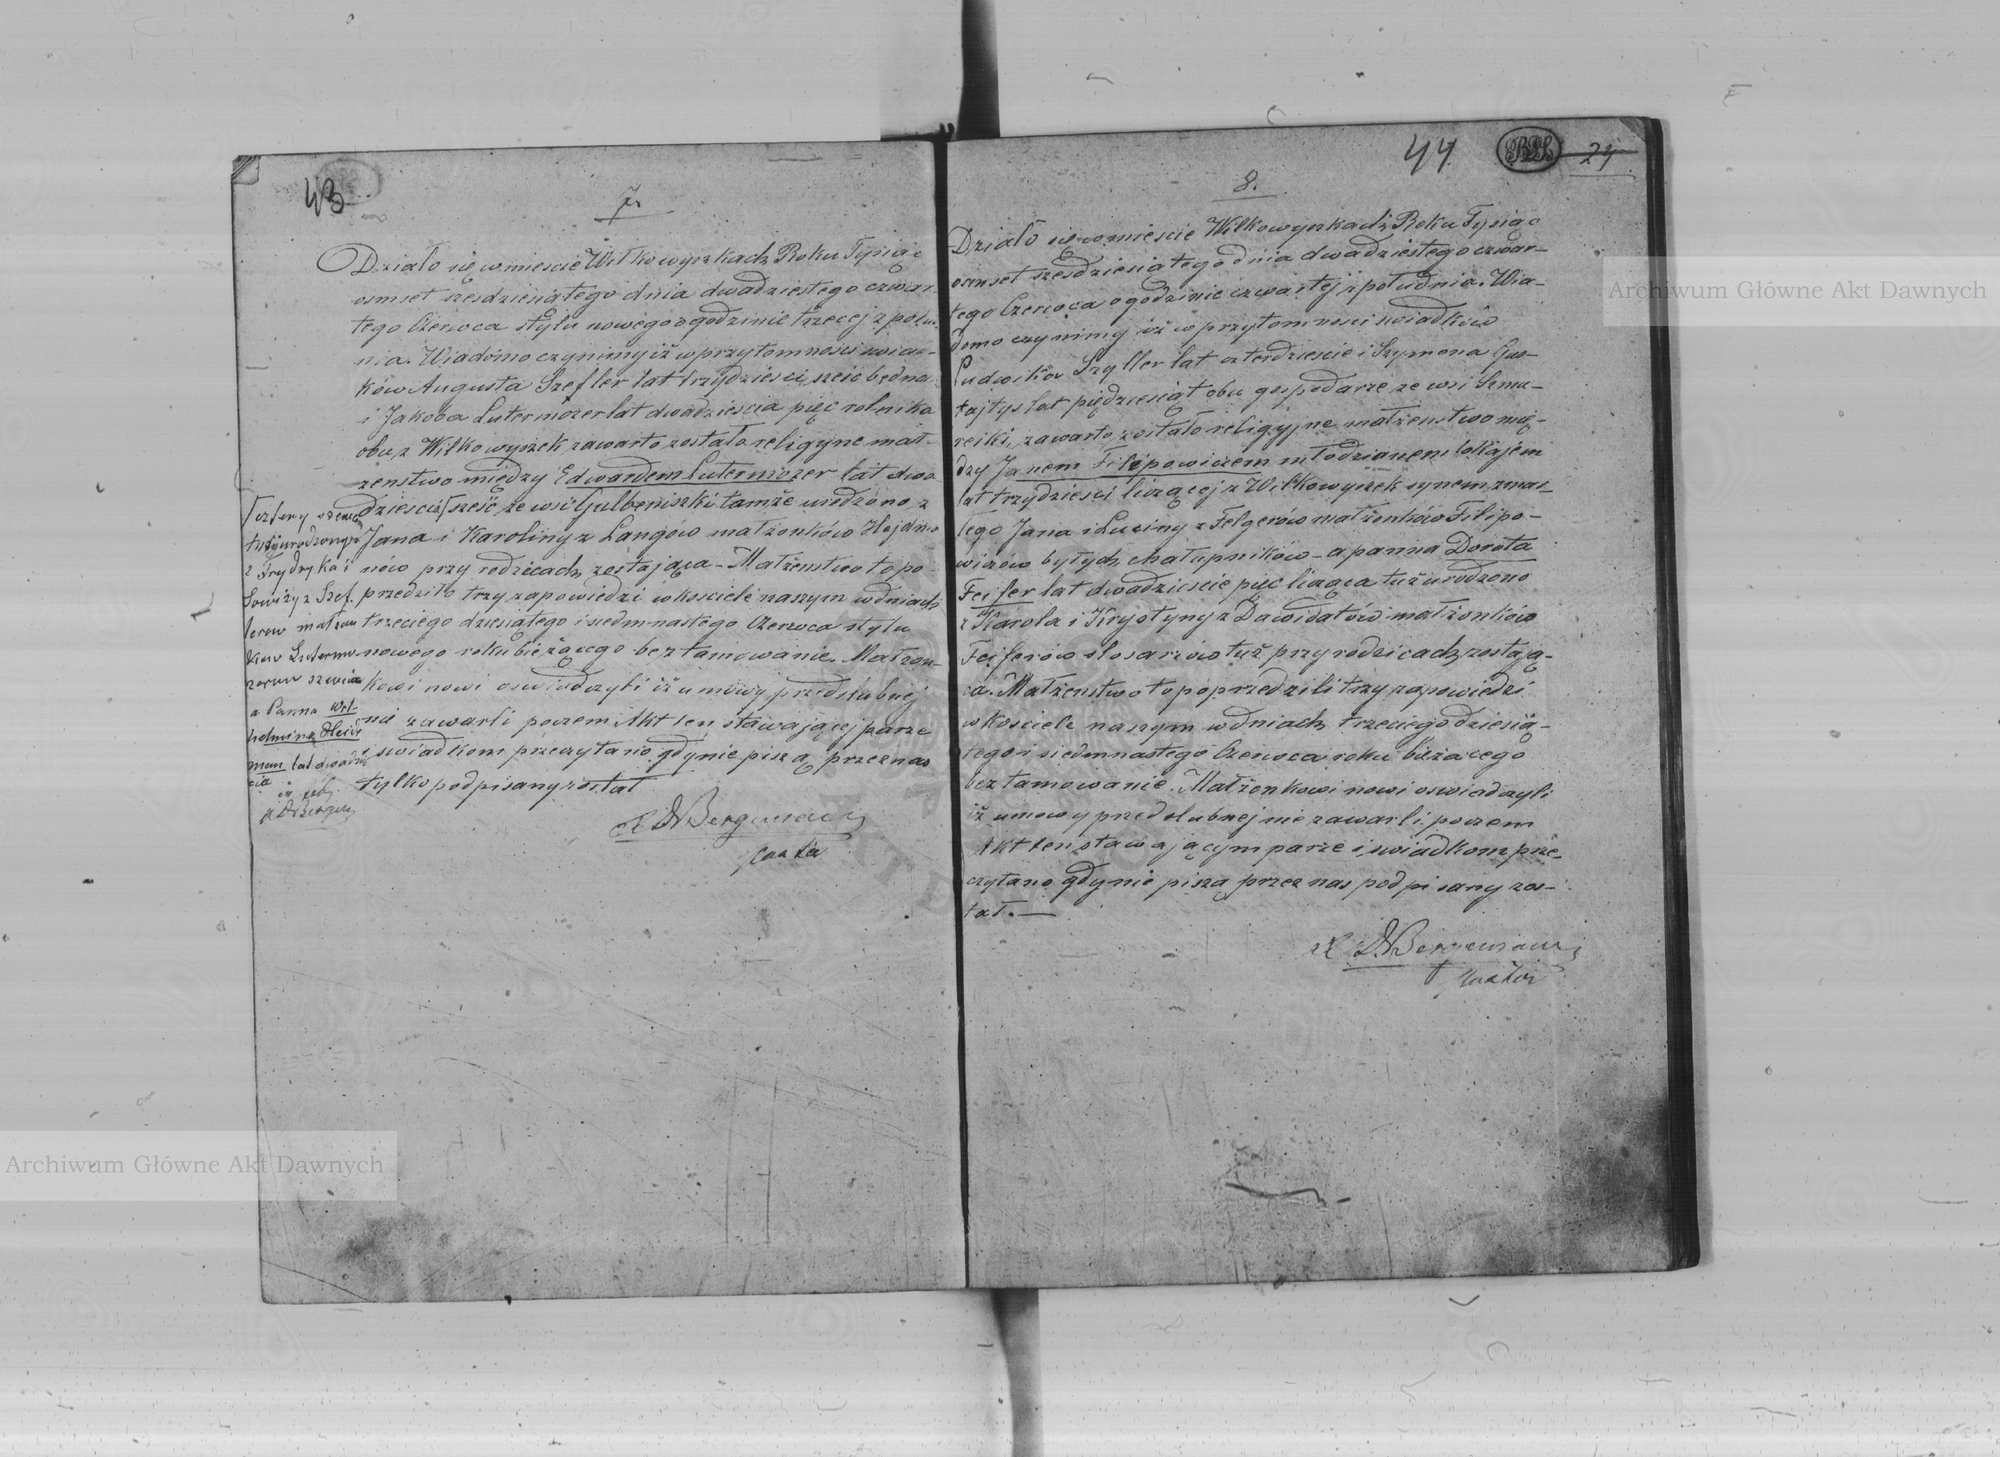 43
7.
Działo się w mieście Wiłkowyszkach Roku Tysiąc
osmset sześdziesiątego dnia dwadziestego czwar-
tego Czerwca stylu nowego o godzinie trzeciej z połu-
nia. Wiadomo czynimy iż w przytomności świad-
ków Augusta Szefler lat trzydzieści sześć bednarz
i Jakoba Lutermozer lat dwadzieścia pięć rolnika
obu z Wiłkowyszek zawarte zostało religijne mał-
żenstwo między Edwardem Lutermozer lat dwa
dzieścia sześć ze wsi Gulbeniszki tamże urodzona z
Jana i Karoliny z Langów małżonków Hejdma-
nów przy rodzicach zostająca - Małżenstwo to po-
przedziło trzy zapowiedzi w kościele naszym w dniach
trzeciego dziesiątego i siedmnastego Czerwca stylu
nowego roku bieżącego bez tamowanie. Małżon-
kowi nowi oswiadczyli iż umowy przedślubnej
nie zawarli poczem Akt ten stawającej parze
i świadkom przeczytano gdy nie piszą, przez nas
tylko podpisany został
X A Bergmann
Pastor
cztery szewc
tutaj urodzonym
z Frydryka i
Lowizy z Szef-
lerow małżon
kow Lutermo
zerow szewca
a Panna Wil-
helminą Heid
man lat dwadzie
cia
A Bergm
44
24
8.
Działo się w mieście Wiłkowyszkach Roku Tysiąc
osmset sześdziesiątego dnia dwadziestego czwar-
tego Czerwca o godzinie czwartej z południa. Wia-
domo czynimy iż w przytomności świadków
Ludwika Szyller lat czterdzieście i Szymona Gus-
tajtys lat pięddziesiąt obu gospodarze ze wsi Semu-
reiki, zawarte zostało religyjne małżenstwo mię-
dzy Janem Filipowiczem młodzianem lokajem
lat trzydzieści liczącej z Wiłkowyszek synem zmar-
łego Jana i Luciny z Felgerów małżonków Filipo-
wiczów byłych chałupników - a panna Dorota
Feifer lat dwadzieście pięć licząca tuż urodzona
z Karola i Krystyny z Dawidatów małżonków
Feiferów slosarzów tuż przy rodzicach zostają-
ca. Małżenstwo to poprzedzili trzy zapowiedzi
w kościele naszym w dniach trzeciego dziesią-
tego i siedmnastego Czerwca roku bieżacego
bez tamowanie. Małżonkowi nowi oswiadczyli
iż umowy przedślubnej nie zawarli poczem
Akt ten stawającym parze i świadkom prze-
czytano gdy nie piszą przez nas podpisany zos-
tał. —
X A Bergmann
Pastor
Archiwum Główne Akt Dawnych
Archiwum Główne Akt Dawnych